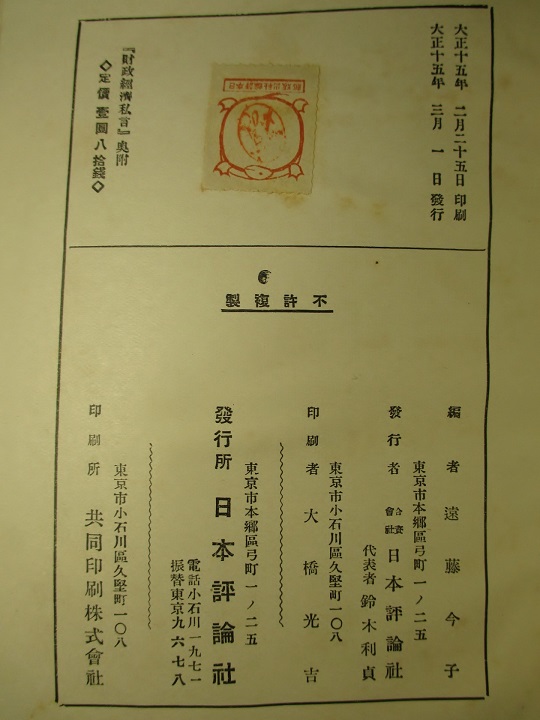 大正十五年 二月二十五日 印刷
大正十五年 三月一日 發行
『財政經濟私言』奧附
◇定價 壹圓八拾錢◇
不許複製
編者 遠藤今子
東京市本鄉區弓町一ノ二五
發行者 合資會社 日本評論社
代表者 鈴木利貞
東京市小石川區久堅町一〇八
印刷者 大橋光吉
東京市本鄉區弓町一ノ二五
發行所 日本評論社
電話小石川一九七一
振替東京九六七八
東京市小石川區久堅町一〇八
印刷所 共同印刷株式會社